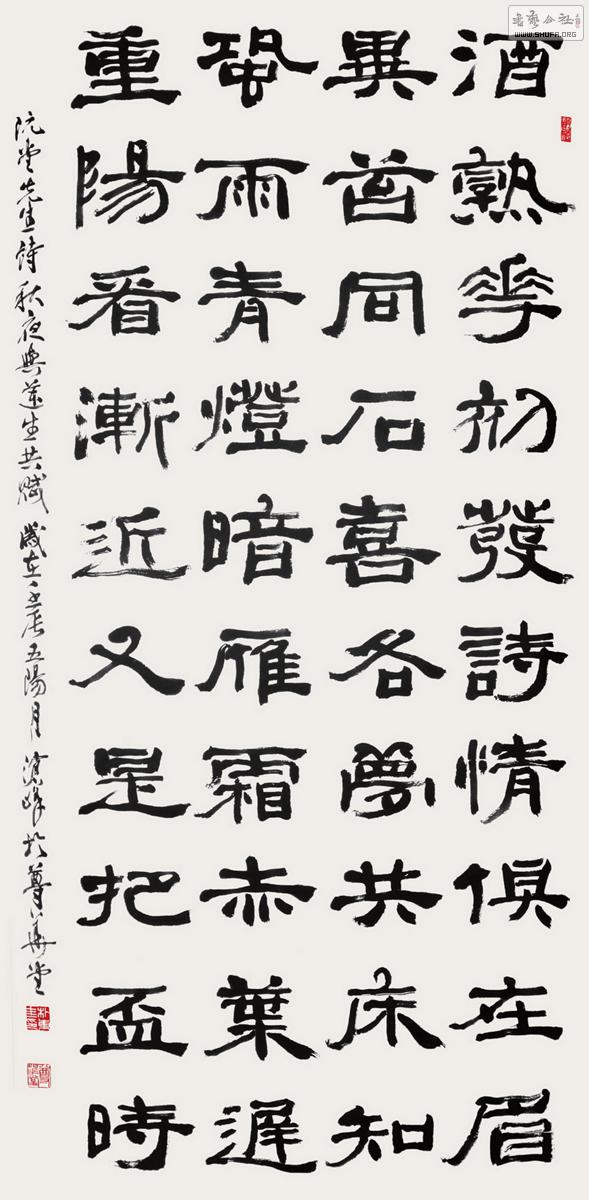 酒熟花初發詩情俱在眉
異苔同石喜各夢共床知
風雨青燈暗雁霜赤葉遲
重陽看漸近又是把盃時
阮堂先生詩秋夜與蓮生共賦 歲在壬辰五陽月 滄峰於尊華堂
書藝公社
WWW.SHUFA.ORG